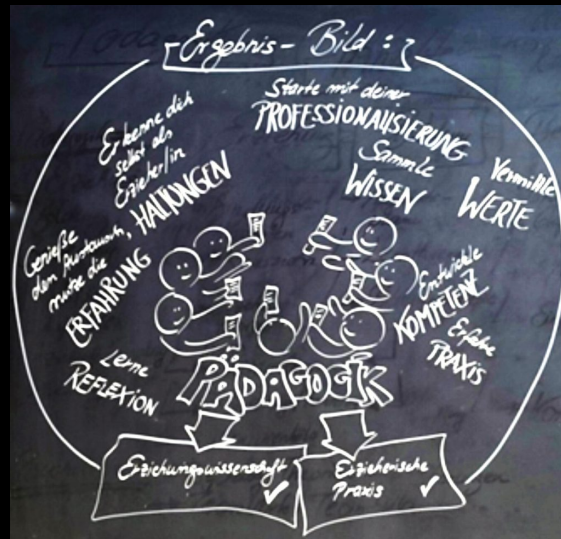 Ergebnis - Bild :
Starte mit deiner
PROFESSIONALISIERUNG
Sammle
WISSEN
Vermittle
WERTE
Erkenne dich
selbst als
Erzieher/in
HALTUNGEN
Genieße
den Austausch,
nutze die
ERFAHRUNG
Entwickle
KOMPETENZ
Erfahre
PRAXIS
Lerne
REFLEXION
PÄDAGOGIK
Erziehungswissenschaft
Erzieherische
Praxis